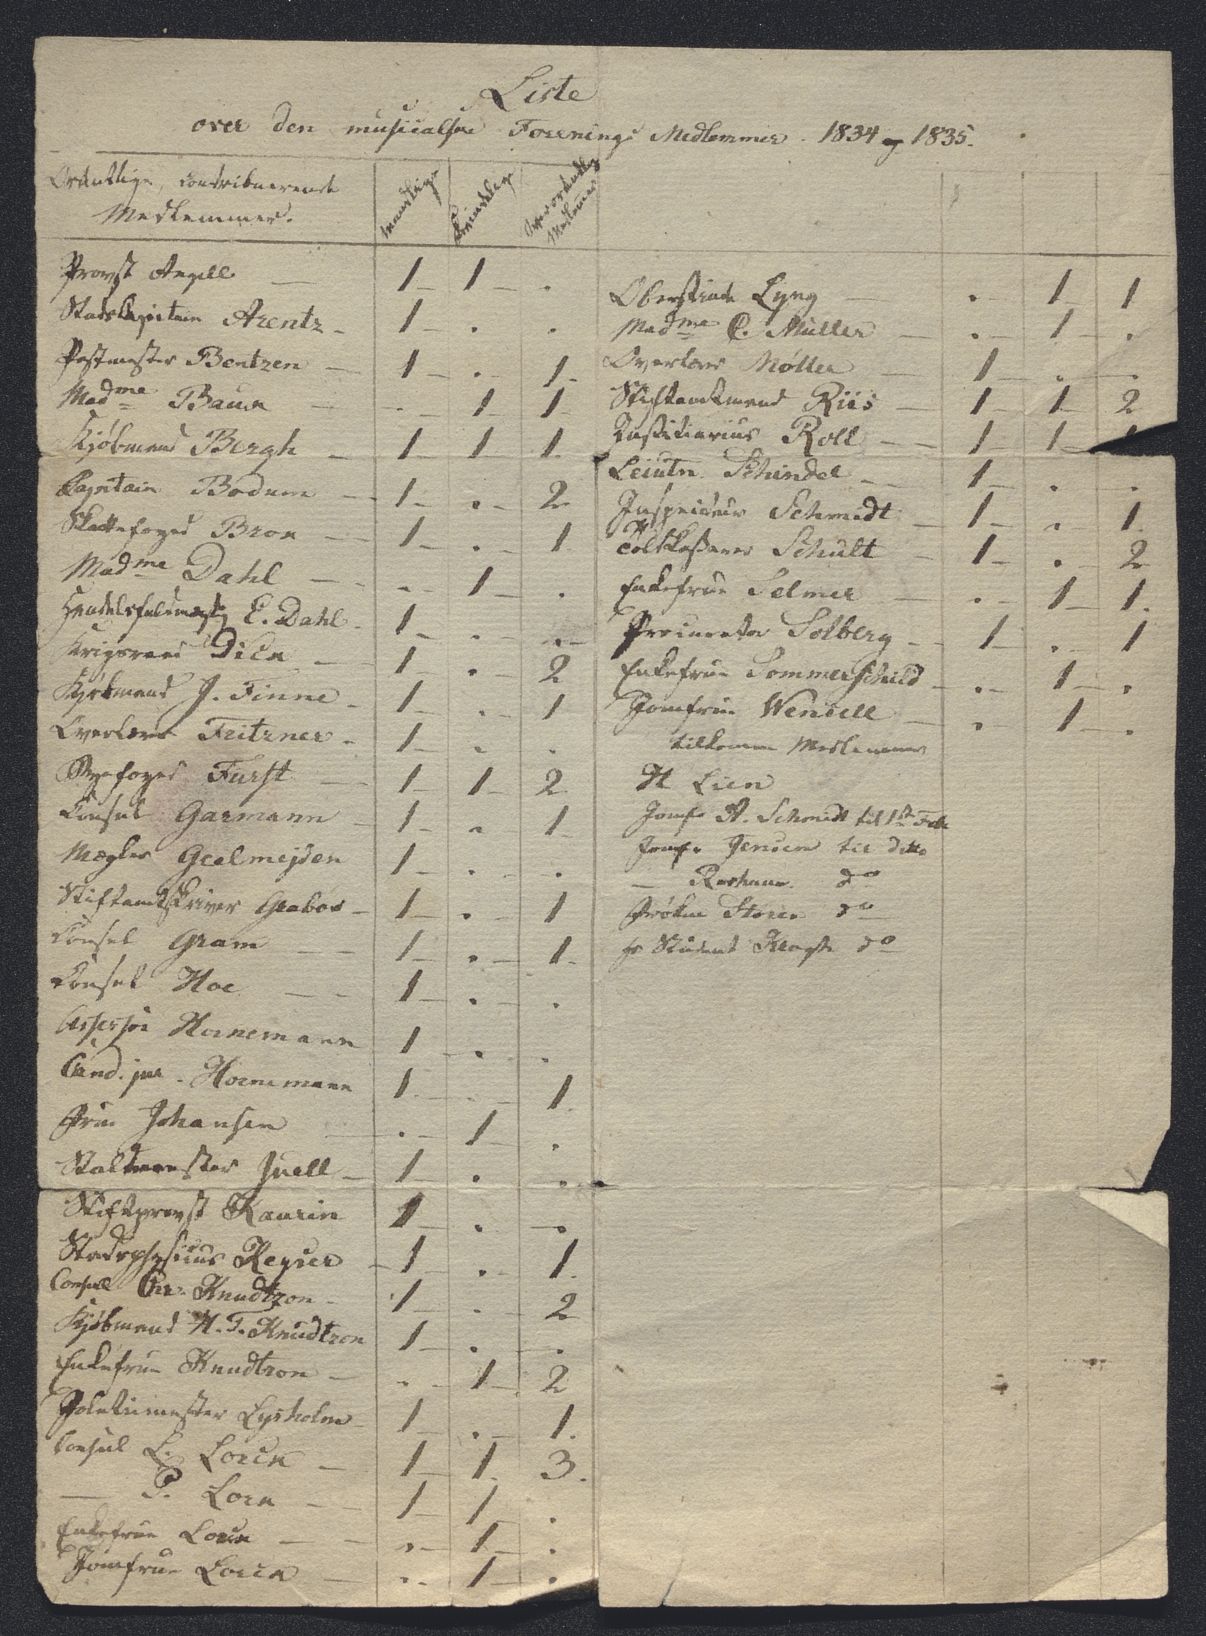 Liste
over den musicalske Forenings Medlemmer 1834 og 1835.
Ordentlige, contribuerende
Medlemmer.
mandlige
kvindelige
overordentlig
Medlemmer
Provst Angell 1 1 .
Stadskapitain Arentz 1 . .
Postmester Bentzen 1 . 1
Madme Bauck . 1 1
Kjøbmand Bergh 1 1 1
Capitain Bodum 1 . 2
Skattefoged Brou 1 . 1
Madme Dahl . 1 .
Handelsfuldmægtig E. Dahl 1 . .
Krigsraad Dick 1 . 2
Kjøbmand J. Finne 1 . 1
Overlærer Fritzner 1 . .
Byefoged Fürst 1 1 2
Consul Garmann 1 . 1
Mægler Geelmejden 1 . .
Stiftamtskriver Grabow 1 . 1
Consul Gram 1 . 1
Consul Hoe 1 . .
Assessor Hornemann 1 . .
Cand. jur. Hornemann 1 . 1
Frue Johansen . 1 .
Staldmester Juell 1 . .
Stiftsprovst Kaurin 1 . .
Stadsphysicus Keyser 1 . 1
Consul Chr. Knudtzon 1 . 2
Kjøbmand H. T. Knudtzon 1 . .
Enkefrue Knudtzon . 1 2
Politimester Lysholm 1 . 1
Consul L. Lorck 1 1 3
— P. Lorck 1 1 .
Enkefrue Lorck . 1 .
Jomfrue Lorck . 1 .
Oberstinde Lyng . 1 1
Madme C. Müller . 1 .
Overlærer Møller 1 . .
Stiftamtmand Riis 1 1 2
Justitiarius Roll 1 1 1
Leiutn. Schindel 1 . .
Inspecteur Schmidt 1 . 1
Toldkasserer Schult 1 . 2
Enkefrue Selmer . 1 1
Procurator Solberg 1 . 1
Enkefrue Sommerschild . 1 .
Jomfrue Wensell . 1 .
tilkomne Medlemmer
H Lien
Jomfr A. Schmidt til 1ste Febr
Jomfr Jensen til ditto
— do
Frøken Storm do
Hr Student do